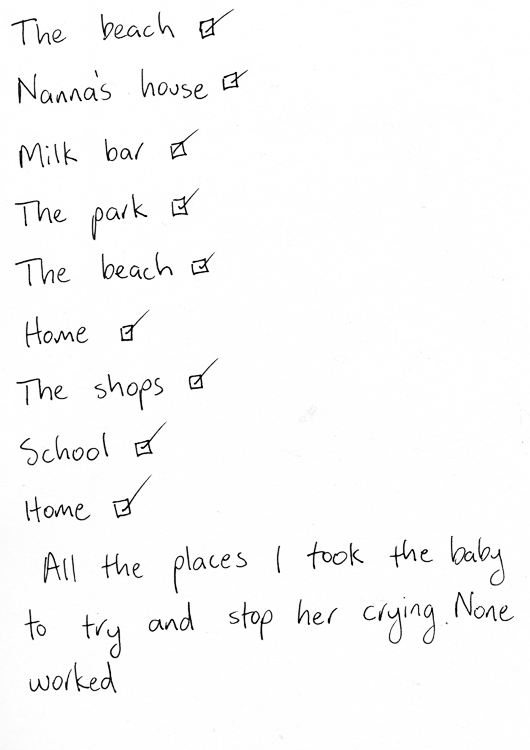 The beach ☑
Nanna's house ☑
Milk bar ☑
The park ☑
The beach ☑
Home ☑
The shops ☑
School ☑
Home ☑
All the places I took the baby
to try and stop her crying. None
worked